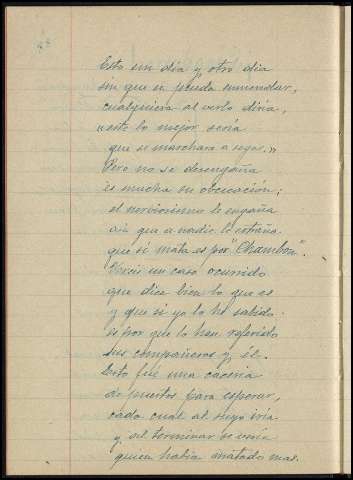 Esto un día y otro día
sin que se pueda enmendar,
cualquiera al verlo diría,
"esto lo mejor sería
que se marchara a segar."
Pero no se desengaña
es mucha su obcecación;
el nerviosismo le engaña
así que a nadie le extraña
que si mata es por "Chambon".
Vereis un caso ocurrido
que dice bien lo que es
y que si yo lo he sabido
es por que lo han referido
sus compañeros y él.
Esto fué una cacería
de puestos para esperar,
cada cual al suyo iría
y al terminar se vería
quien había matado mas.